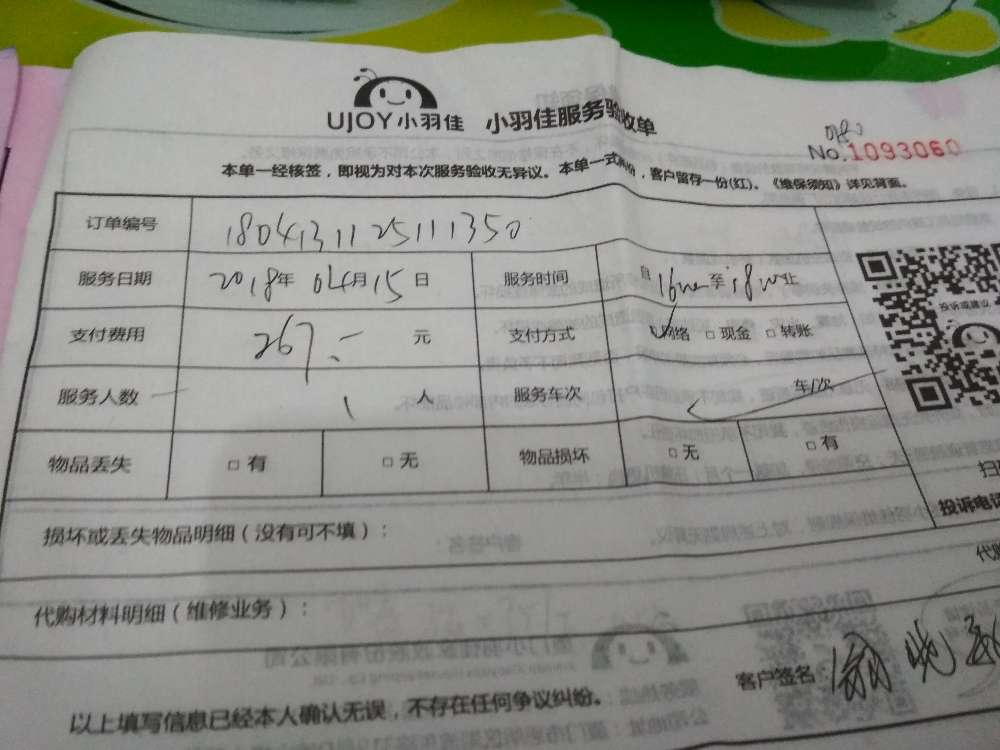 UJOY小羽佳 小羽佳服务验收单
No.1093060
本单一经核签，即视为对本次服务验收无异议。本单一式两份，客户留存一份(红)。《维保须知》详见背面。
订单编号 1804131125111350
服务日期 2018年 04月15日 服务时间 自 至 止
支付费用 267.- 元 支付方式 网络 □ 现金 □ 转账
服务人数 1 人 服务车次 车/次
物品丢失 □ 有 □ 无 物品损坏 □ 无 □ 有
投诉或建议
扫
投诉电话
损坏或丢失物品明细（没有可不填）：
代购
代购材料明细（维修业务）：
客户签名：
以上填写信息已经本人确认无误，不存在任何争议纠纷。